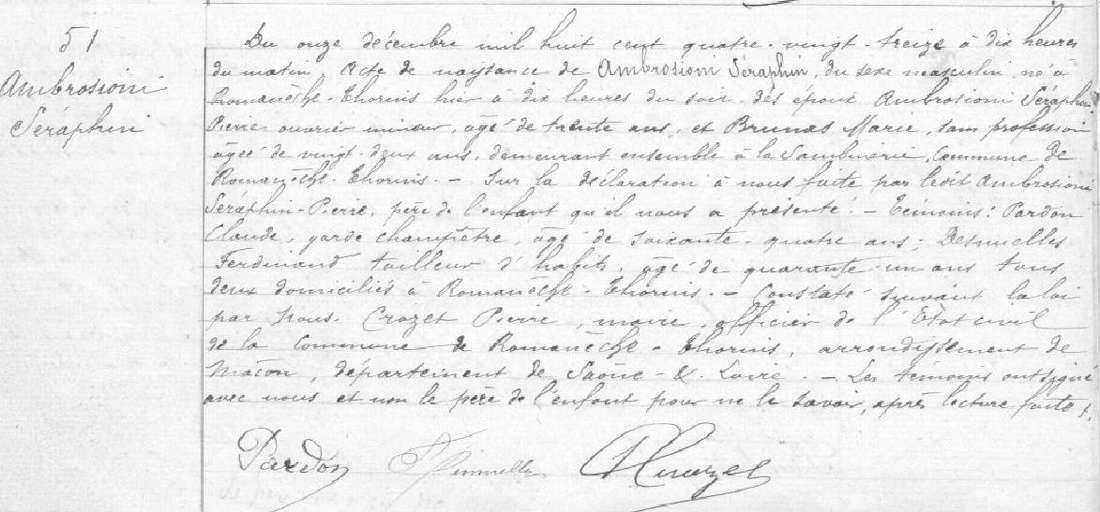 51
Ambrosioni
Séraphin
Du onze décembre mil huit cent quatre-vingt-treize à dix heures
du matin Acte de naissance de Ambrosioni Séraphin, du sexe masculin, né à
Romanèche-Thorins hier à dix heures du soir des époux Ambrosioni Séraphin
Pierre ouvrier mineur, âgé de trente ans, et Brunas Marie, sans profession
âgée de vingt-deux ans, demeurant ensemble à la Commune de
Romanèche-Thorins. - Sur la déclaration à nous faite par ledit Ambrosioni
Séraphin-Pierre, père de l'enfant qu'il nous a présenté. - Témoins: Pardon
Claude, garde champêtre, âgé de soixante-quatre ans; Desmielles
Ferdinand tailleur d'habits, âgé de quarante-un ans tous
deux domiciliés à Romanèche-Thorins. - Constaté suivant la loi
par Nous. Crozet Pierre, maire, officier de l'Etat civil
de la Commune de Romanèche-Thorins, arrondissement de
Mâcon, département de Saône-&-Loire. - Les témoins ont signé
avec nous et non le père de l'enfant pour ne le savoir, après lecture faite.
Pardon